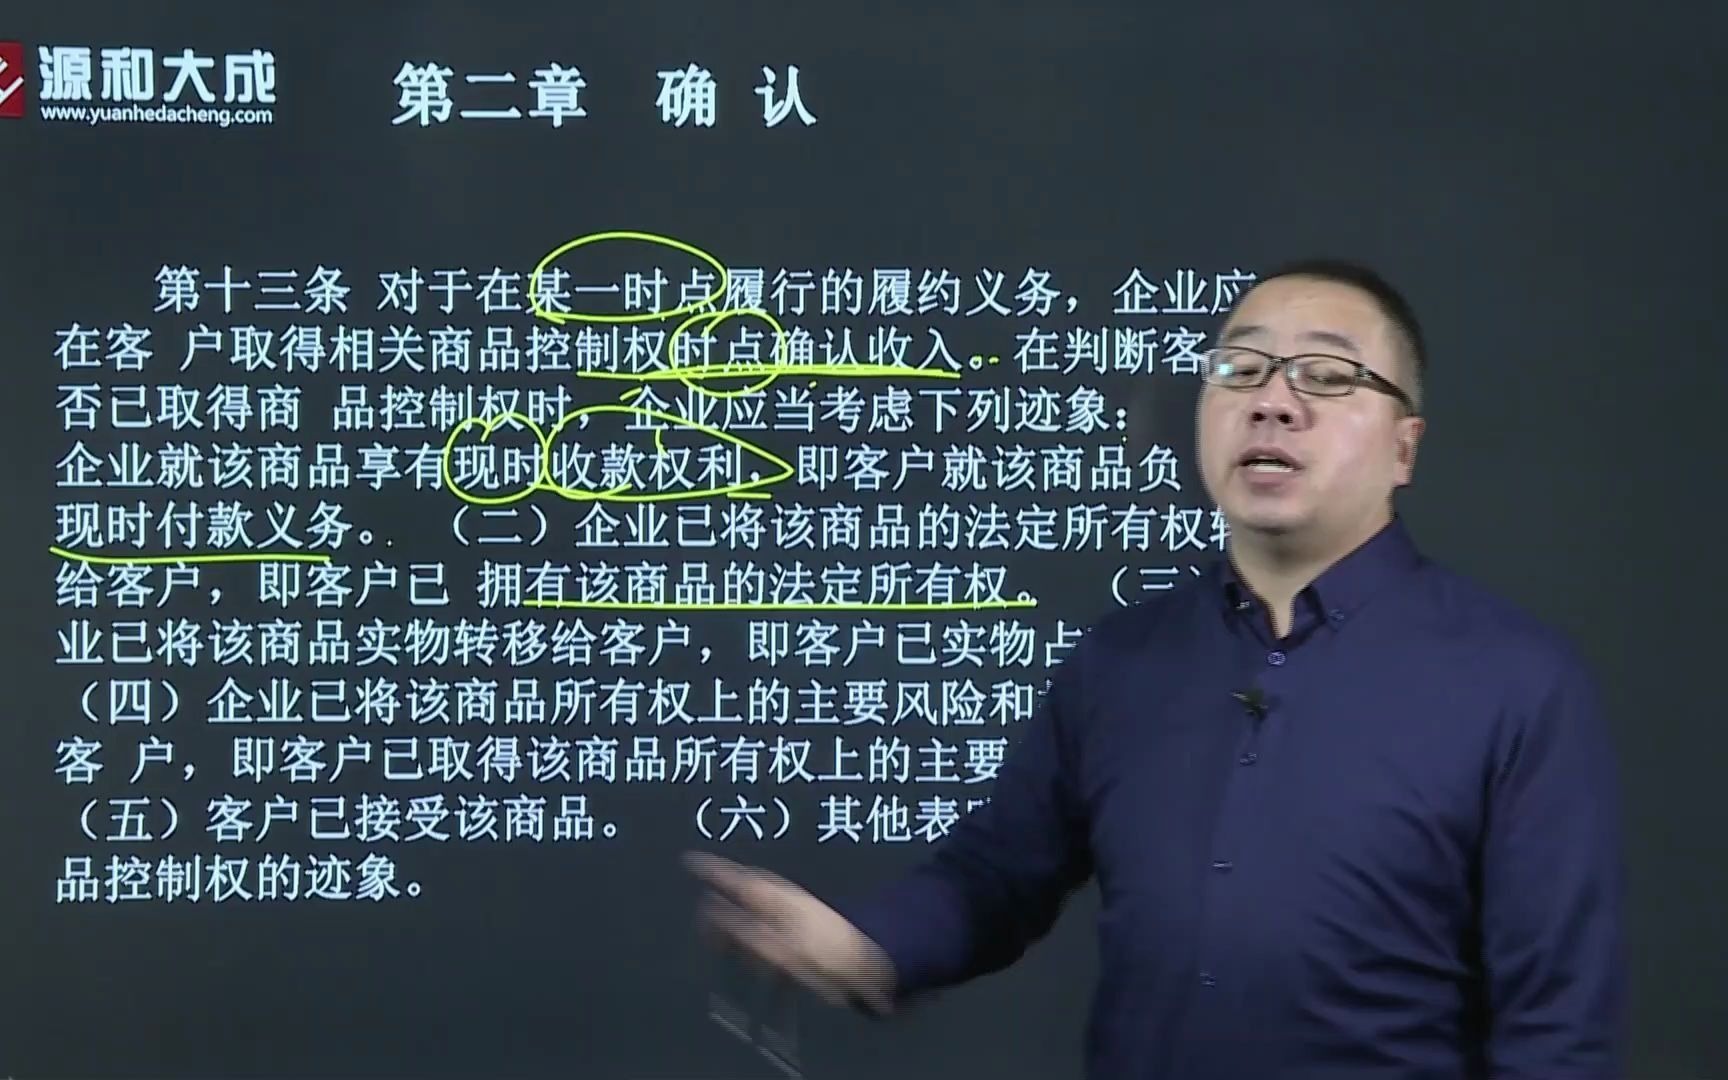 源和大成
www.yuanhedacheng.com
第二章 确 认
第十三条 对于在某一时点履行的履约义务，企业应
在客 户取得相关商品控制权时点确认收入。在判断客
否已取得商 品控制权时，企业应当考虑下列迹象：
企业就该商品享有现时收款权利，即客户就该商品负
现时付款义务。 （二）企业已将该商品的法定所有权转
给客户，即客户已 拥有该商品的法定所有权。 （三）
业已将该商品实物转移给客户，即客户已实物占
（四）企业已将该商品所有权上的主要风险和
客 户，即客户已取得该商品所有权上的主要
（五）客户已接受该商品。 （六）其他表
品控制权的迹象。